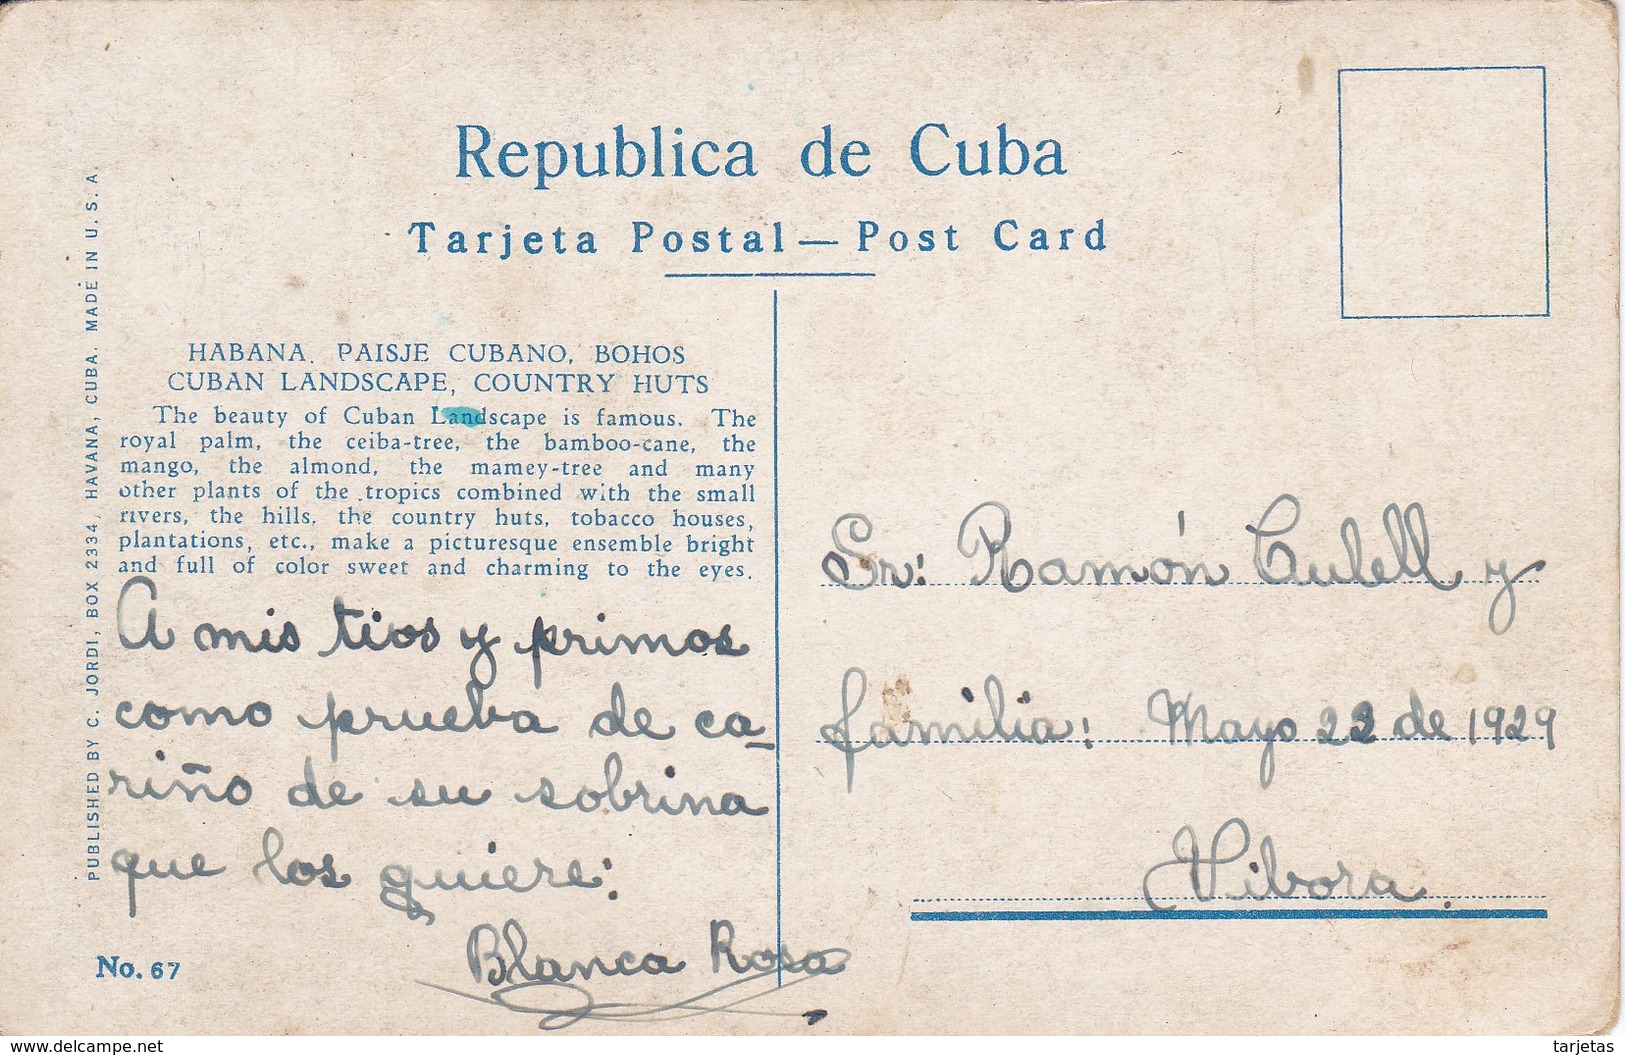 Republica de Cuba
Tarjeta Postal — Post Card
PUBLISHED BY C. JORDI, BOX 2334, HAVANA, CUBA. MADE IN U. S. A
HABANA. PAISJE CUBANO, BOHOS
CUBAN LANDSCAPE, COUNTRY HUTS
The beauty of Cuban Landscape is famous. The
royal palm, the ceiba-tree, the bamboo-cane, the
mango, the almond, the mamey-tree and many
other plants of the tropics combined with the small
rivers, the hills, the country huts, tobacco houses,
plantations, etc., make a picturesque ensemble bright
and full of color sweet and charming to the eyes.
A mis tios y primos
como prueba de ca-
riño de su sobrina
que los quiere:
Blanca Rosa
No. 67
Sr: Ramón Culell y
familia: Mayo 22 de 1929
Vibora.
www.delcampe.net
tarjetas